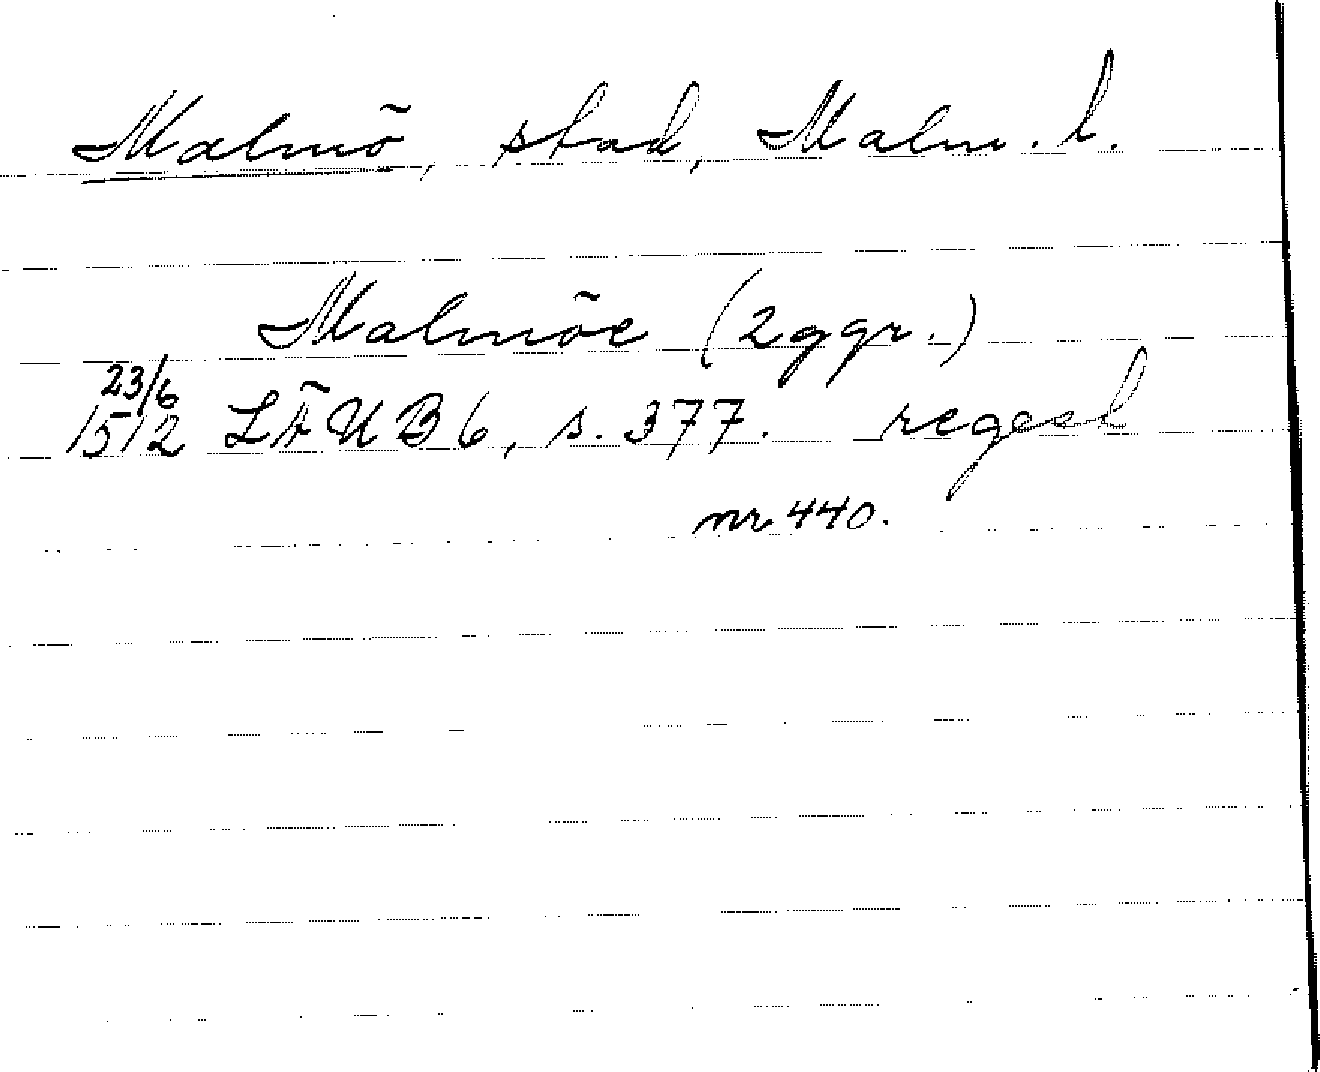 Malmö, stad, Malm. l.
Malmöe (2 ggr.)
23/6
1512 LÄUB 6, s. 377. regest
nr. 440.